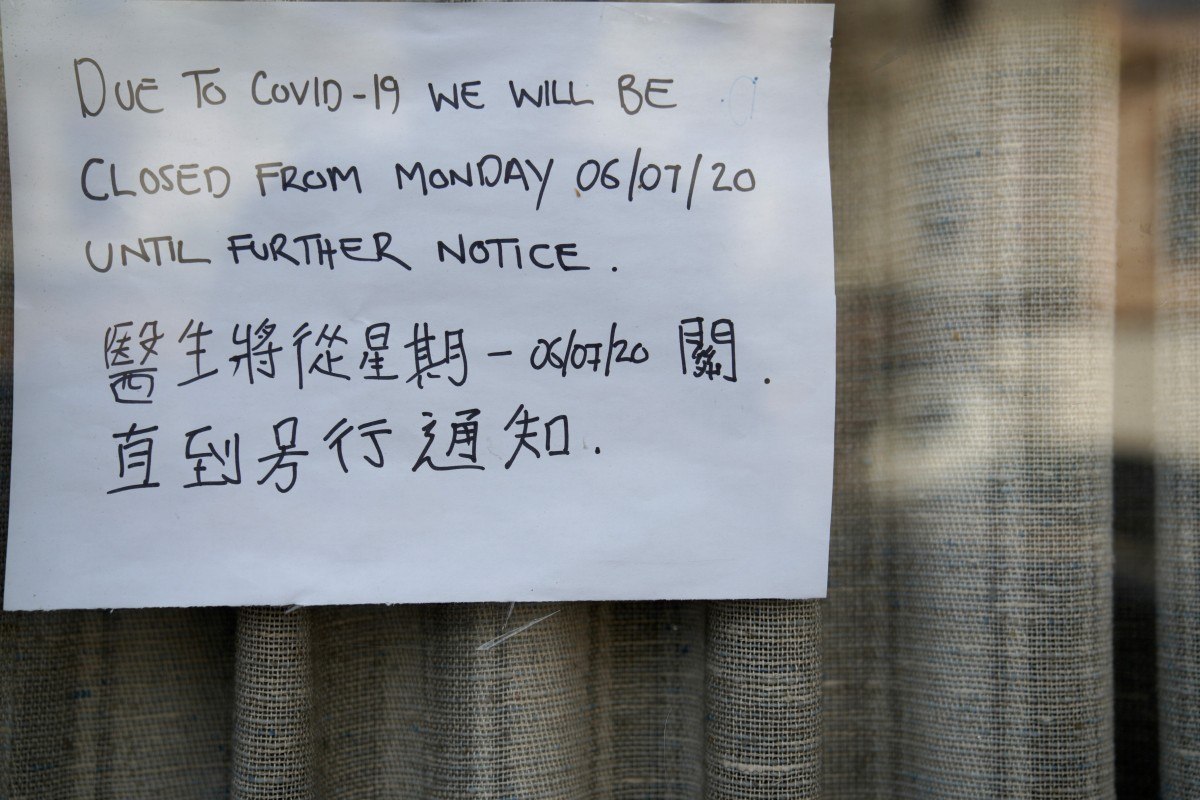 DUE TO COVID-19 WE WILL BE
CLOSED FROM MONDAY 06/07/20
UNTIL FURTHER NOTICE.
醫生將從星期一 06/07/20 關.
直到另行通知.